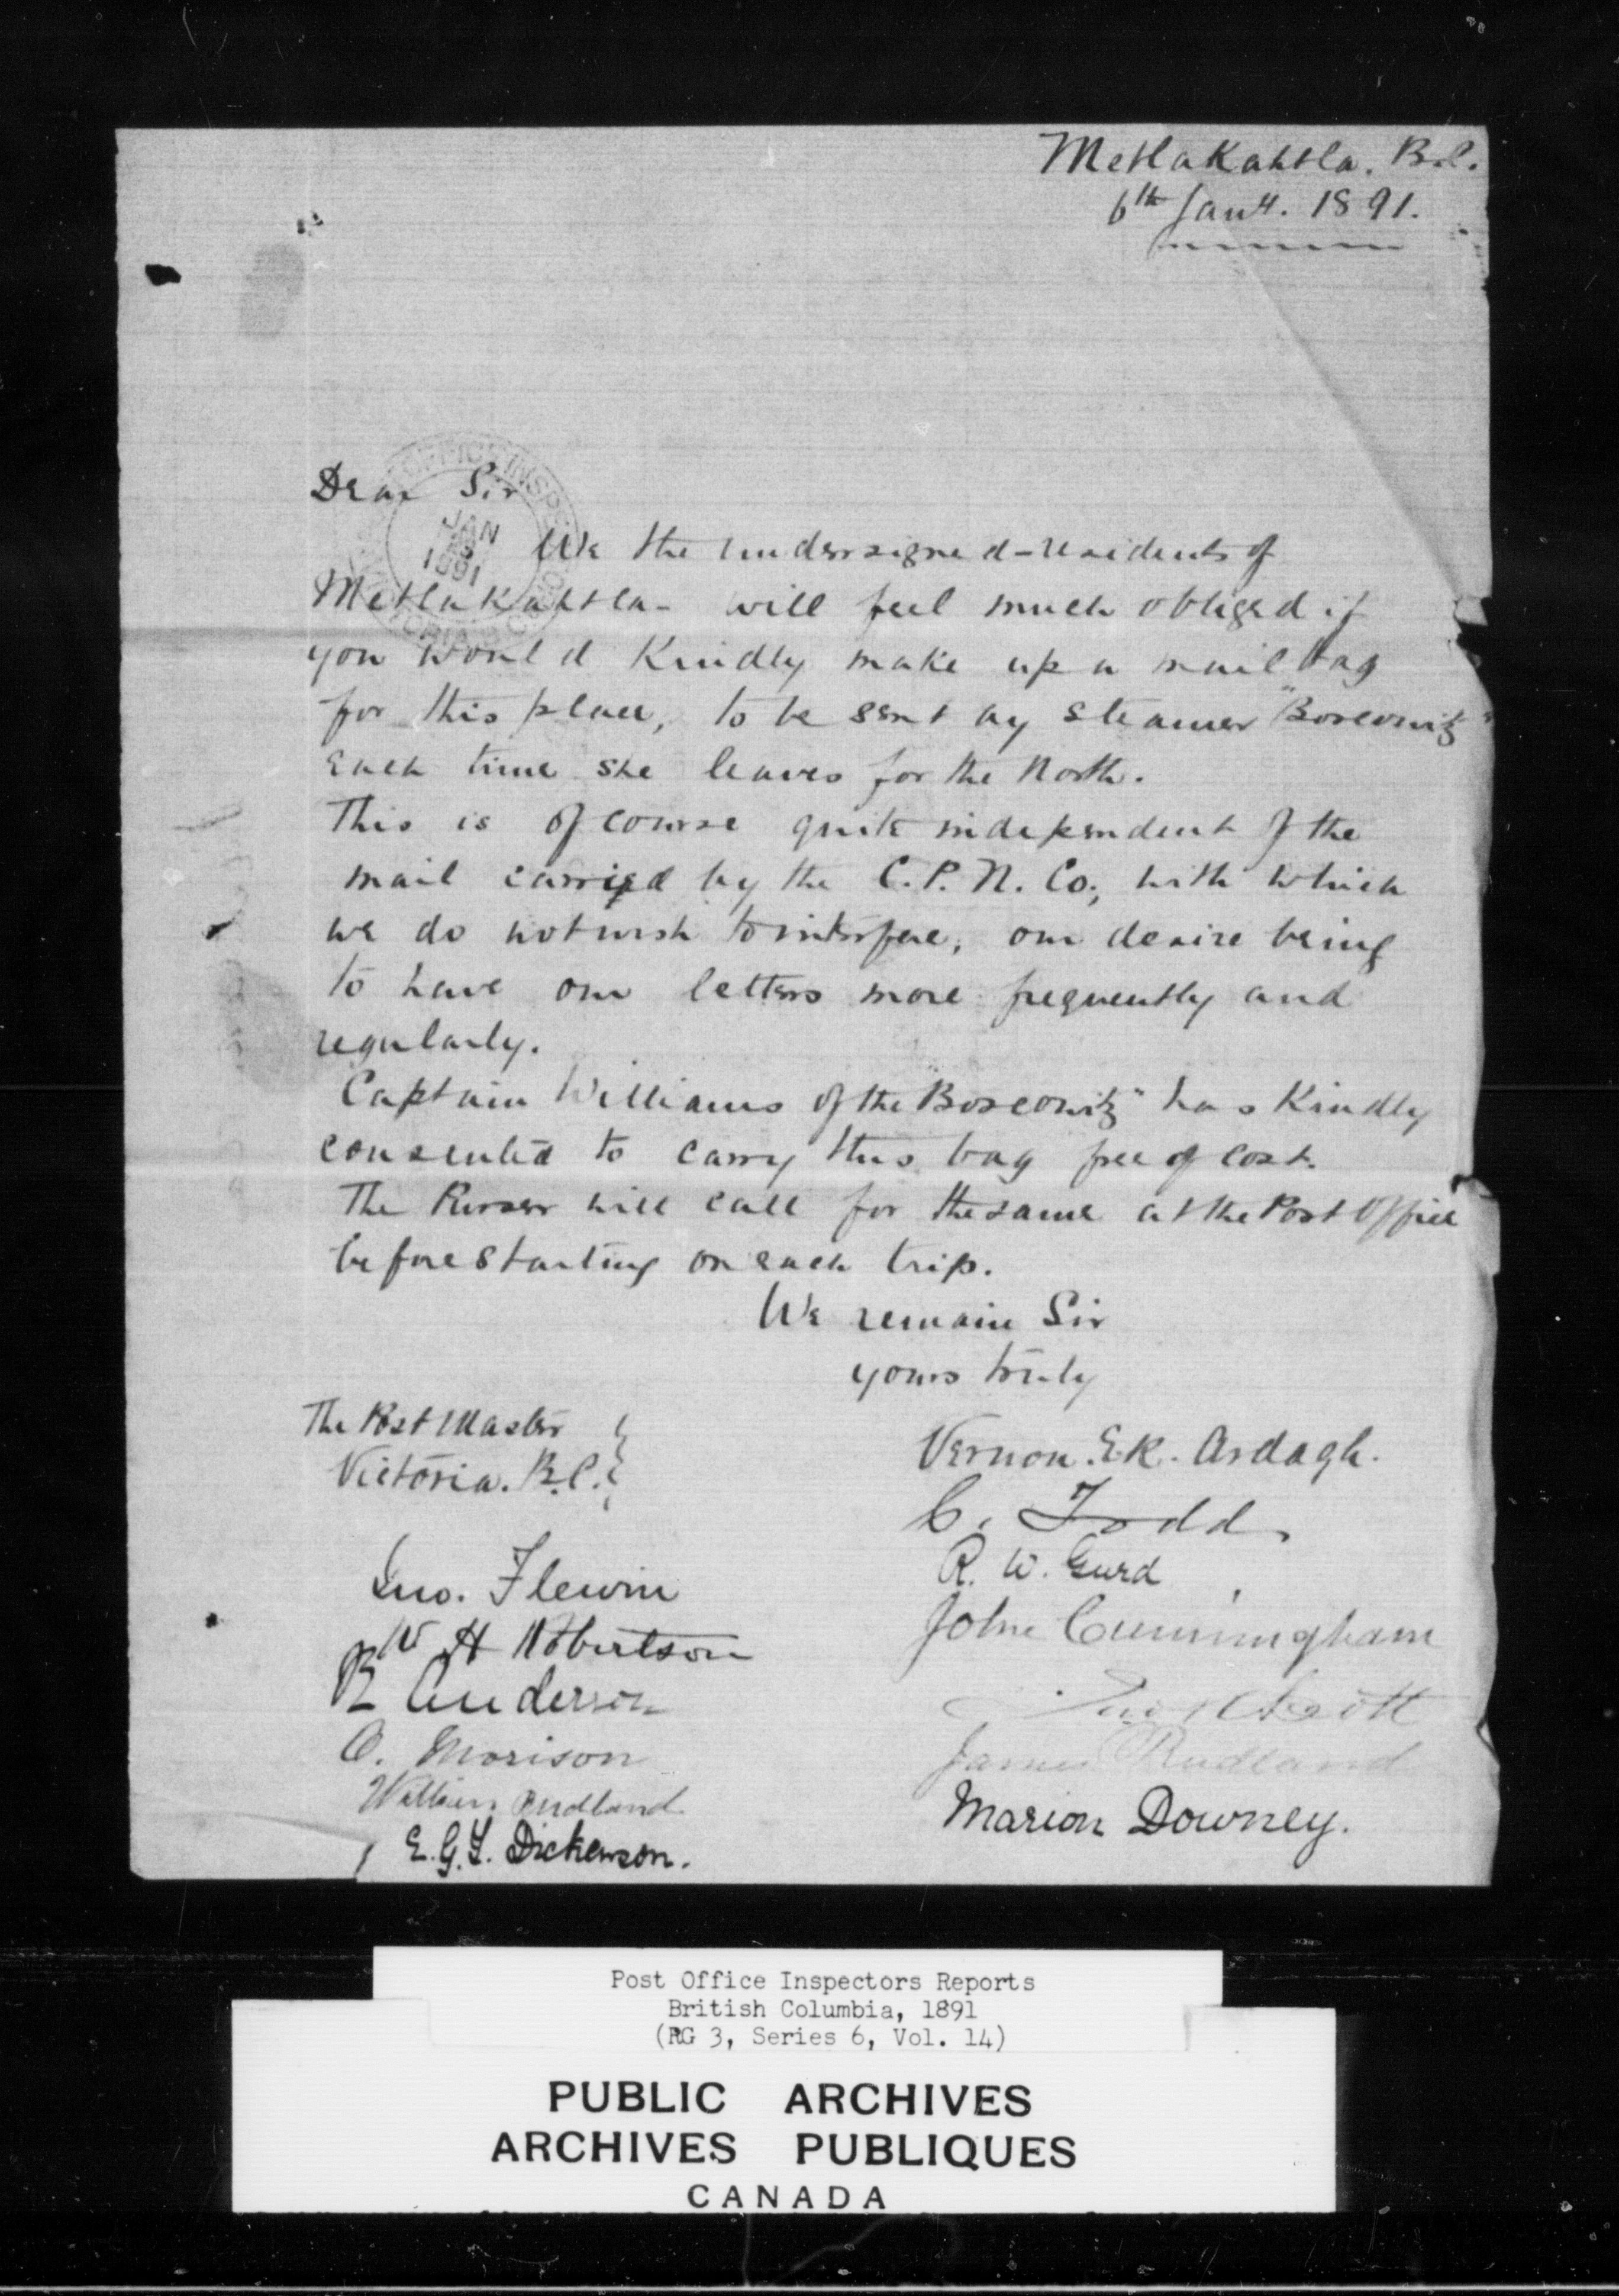 Metlakahtla. B.C.
6th Jany. 1891.
Dear Sir
JAN
1891
We the undersigned - residents of
Metlakahtla - will feel much obliged if
you would Kindly make up a mail bag
for this place, to be sent by steamer "Boscowitz"
each time she leaves for the North.
This is of course quite independent of the
mail carried by the C.P.N. Co., with which
we do not wish to interfere, our desire being
to have our letters more frequently and
regularly.
Captain Williams of the "Boscowitz" has Kindly
consented to carry this bag free of cost.
The Purser will call for the same at the Post Office
before starting on each trip.
We remain Sir
yours truly
The Post Master
Victoria. B.C.
Vernon. E.K. Ardagh.
C. Todd
R. W. Gurd
John Cunningham
Scott
James Rudland
Marion Downey.
Jno. Flewin
W H Robertson
R Anderson
O. Morison
William Rudland
E. G. Y. Dickenson.
Post Office Inspectors Reports
British Columbia, 1891
(RG 3, Series 6, Vol. 14)
PUBLIC ARCHIVES
ARCHIVES PUBLIQUES
CANADA